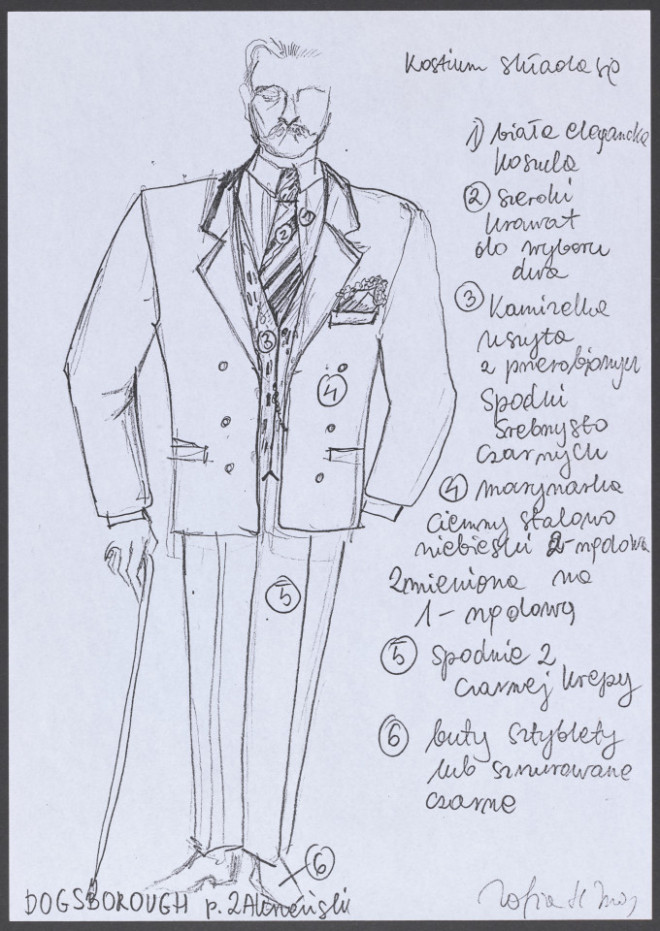 Kostium składa się
1) biała elegancka
koszula
2 szeroki
krawat
do wyboru
dwa
3 Kamizelka
uszyta
z przerobionych
spodni
srebrzysto
czarnych
4 marynarka
ciemny stalowo
niebieski 2-rzędowa
zmieniona na
1-rzędową
5 spodnie z
czarnej krepy
6 buty sztyblety
lub sznurowane
czarne
2
1
3
4
5
6
DOGSBOROUGH p.
Zofia